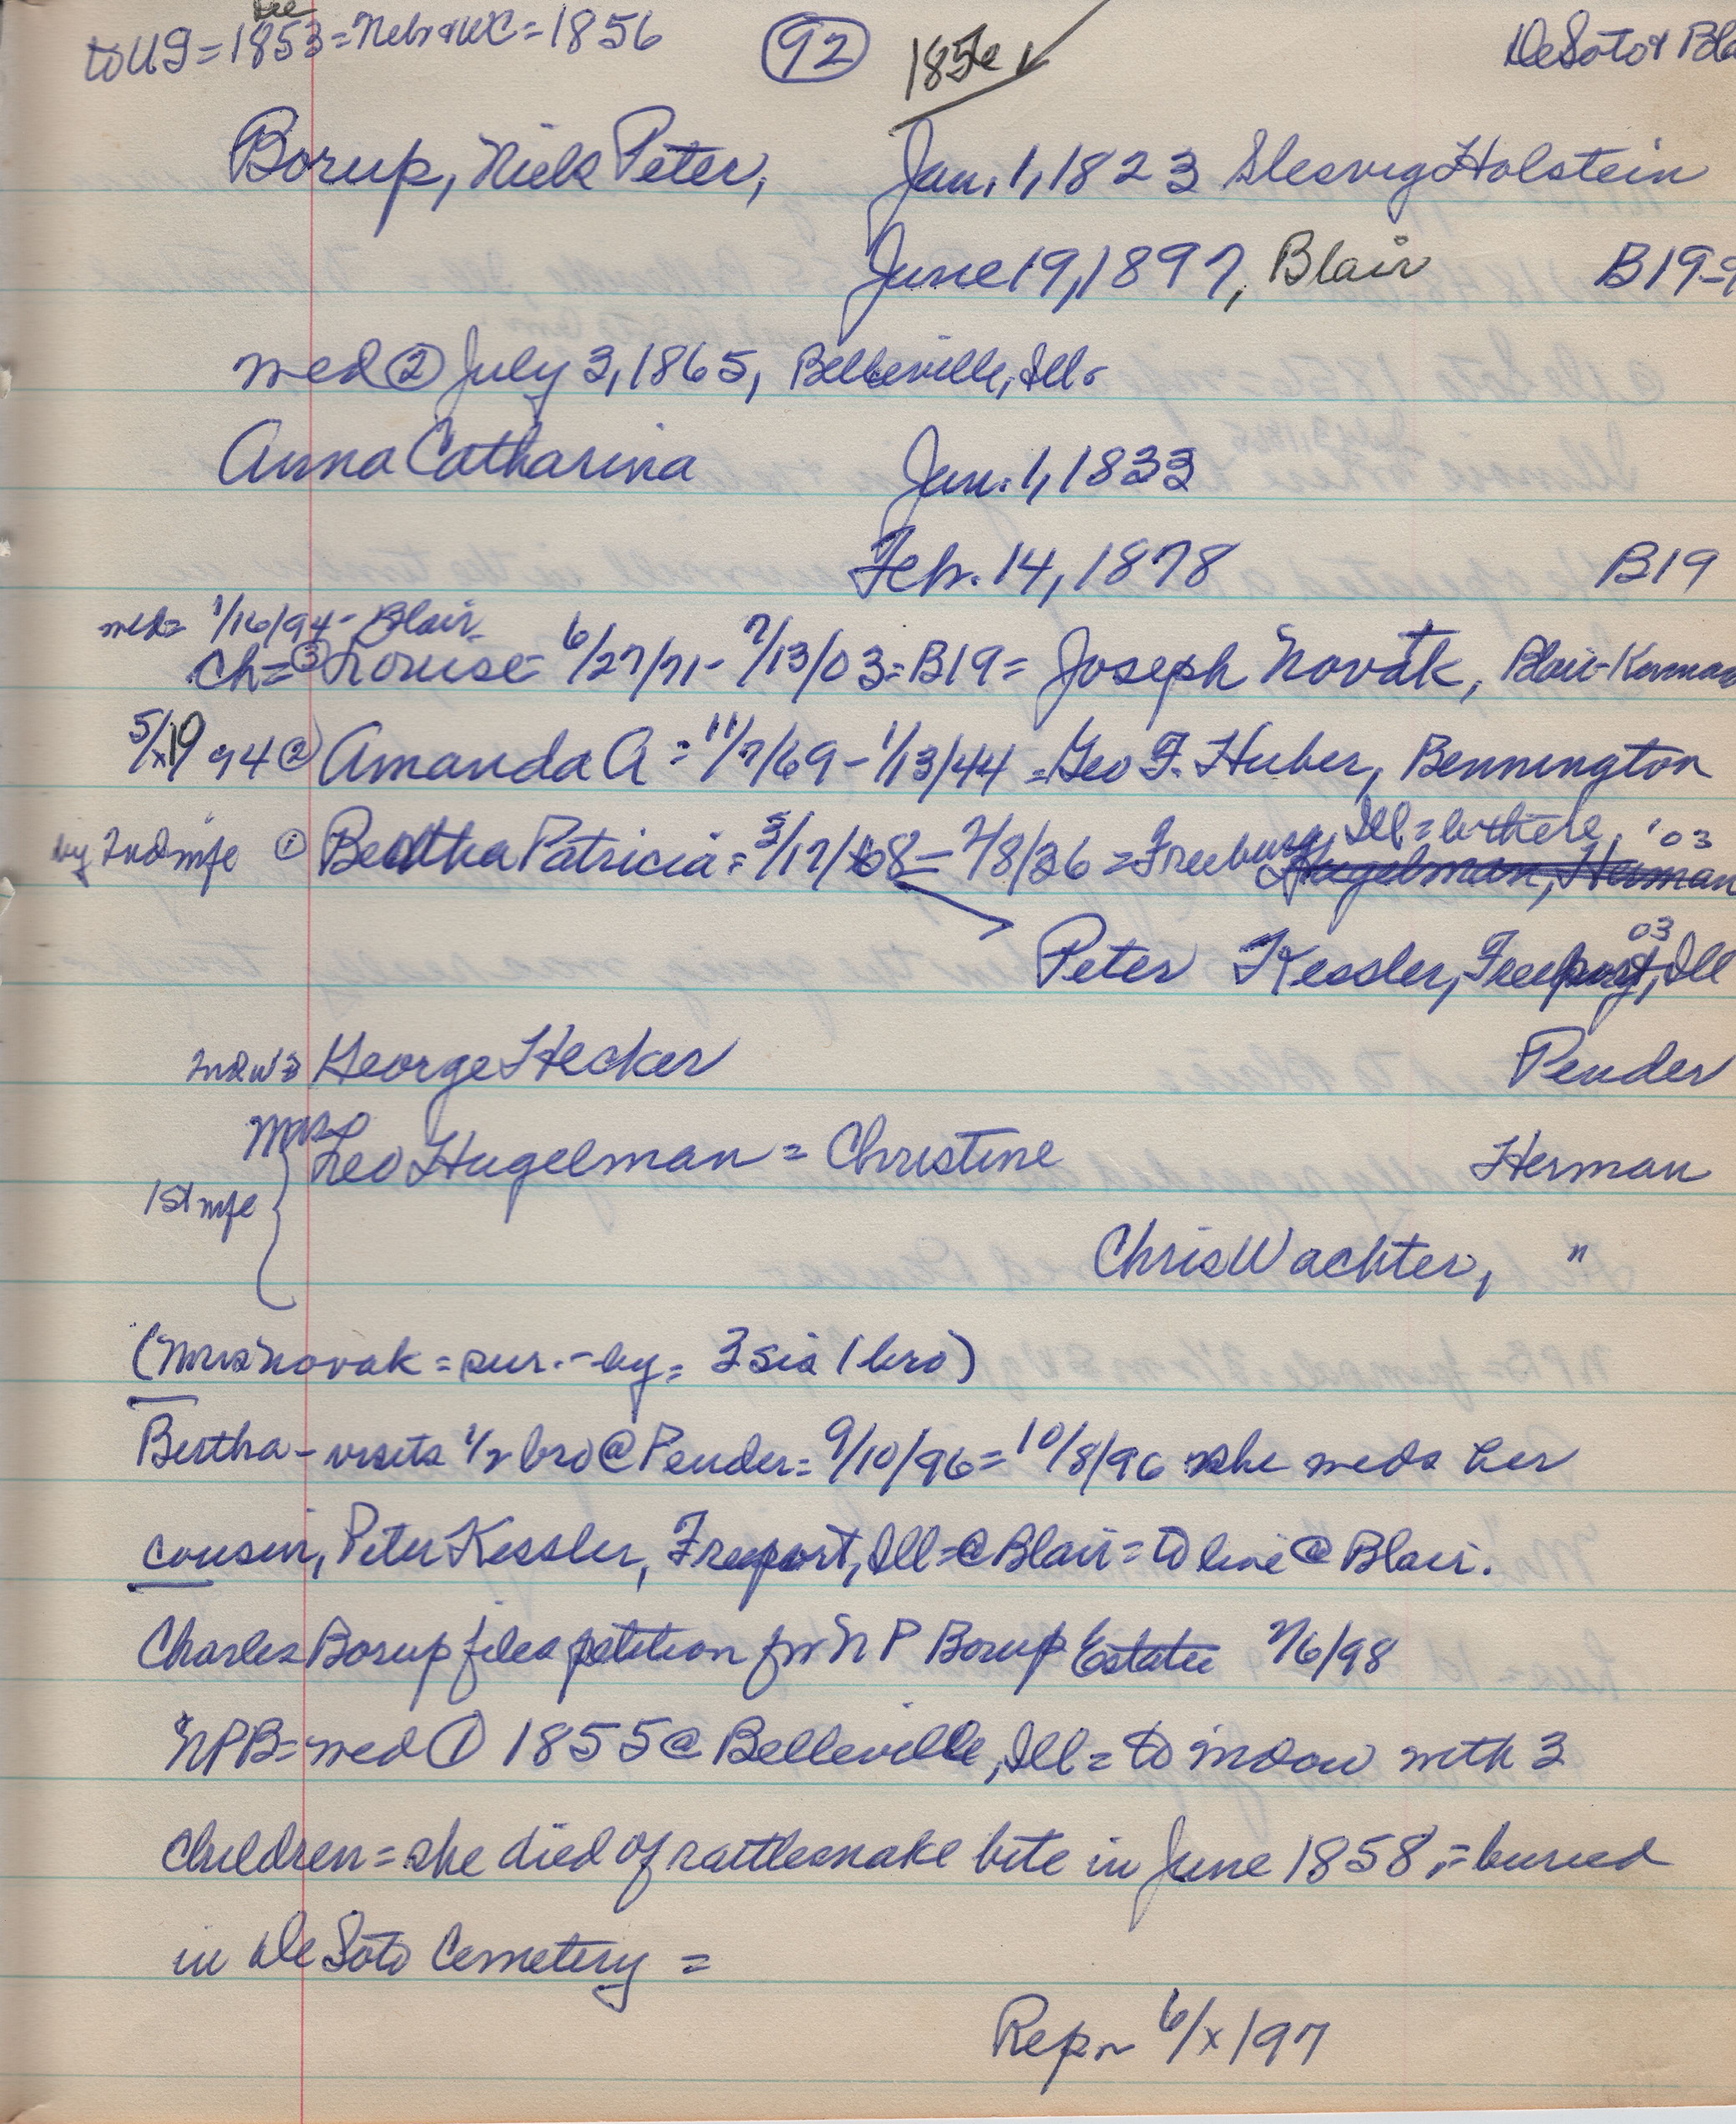 to US = 1853 = Nebr & WC = 1856
92
1856 ✓
DeSoto & Bla
Borup, Niels Peter, Jan. 1, 1823 Slesvig Holstein
June 19, 1897, Blair B19-9
med ② July 3, 1865, Belleville, Ill.
Anna Catharina Jan. 1, 1833
Feb. 14, 1878 B19
med = 1/16/94 - Blair
ch = ③ Louise = 6/27/71 - 7/13/03 = B19 = Joseph Novak, Blair-
5/x/94 ② Amanda A = 11/7/69 - 1/13/44 = Geo F. Huber, Bennington
by 2nd wife ① Bertha Patricia = 3/17/68 - 7/8/36 = Freeburg, Ill = b there, '03
Hugelman, Herman
Peter Kessler, Freeburg, Ill 03
2nd w's George Hecker Pender
Mrs
1st wife { Leo Hugelman = Christine Herman
Chris Wachter, "
(Mrs Novak = sur. - by = 3 sis 1 bro)
Bertha - visits 1/2 bro @ Pender = 9/10/96 = 10/8/96 she meds her
cousin, Peter Kessler, Freeport, Ill = @ Blair = to live @ Blair.
Charles Borup files petition for N P Borup Estate 7/6/98
NPB = med ① 1855 @ Belleville, Ill = to widow with 3
children = she died of rattlesnake bite in June 1858, = buried
in De Soto Cemetery =
Repr 6/x/97